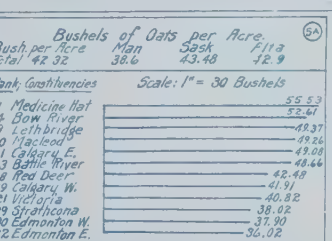 Bushels of Oats per Acre. 5A
Bush. per Acre Man Sask Flta
Total 42 32 38.6 43.48 42.9
Rank; Constituencies Scale: 1" = 30 Bushels
Medicine Hat 55 53
Bow River 52.61
Lethbridge 49.37
Macleod 49.26
Calgary E. 49.08
Battle River 48.66
Red Deer 42.48
Calgary W. 41.91
Victoria 40.82
Strathcona 38.02
Edmonton W. 37.90
Edmonton E. 36.02